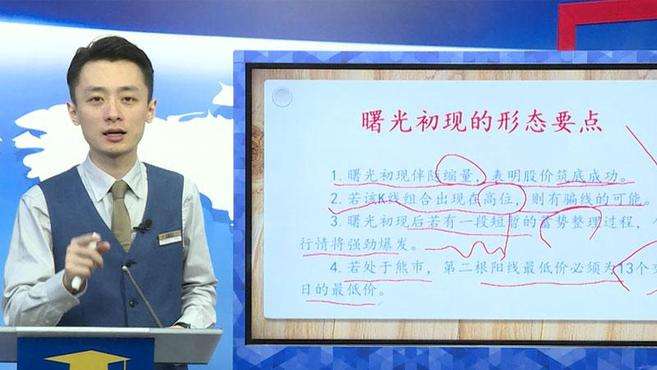 曙光初现的形态要点
1. 曙光初现伴随缩量，表明股价筑底成功。
2. 若该K线组合出现在高位，则有骗线的可能。
3. 曙光初现后若有一段短暂的蓄势整理过程，
行情将强劲爆发。
4. 若处于熊市，第二根阳线最低价必须为13个
日的最低价。